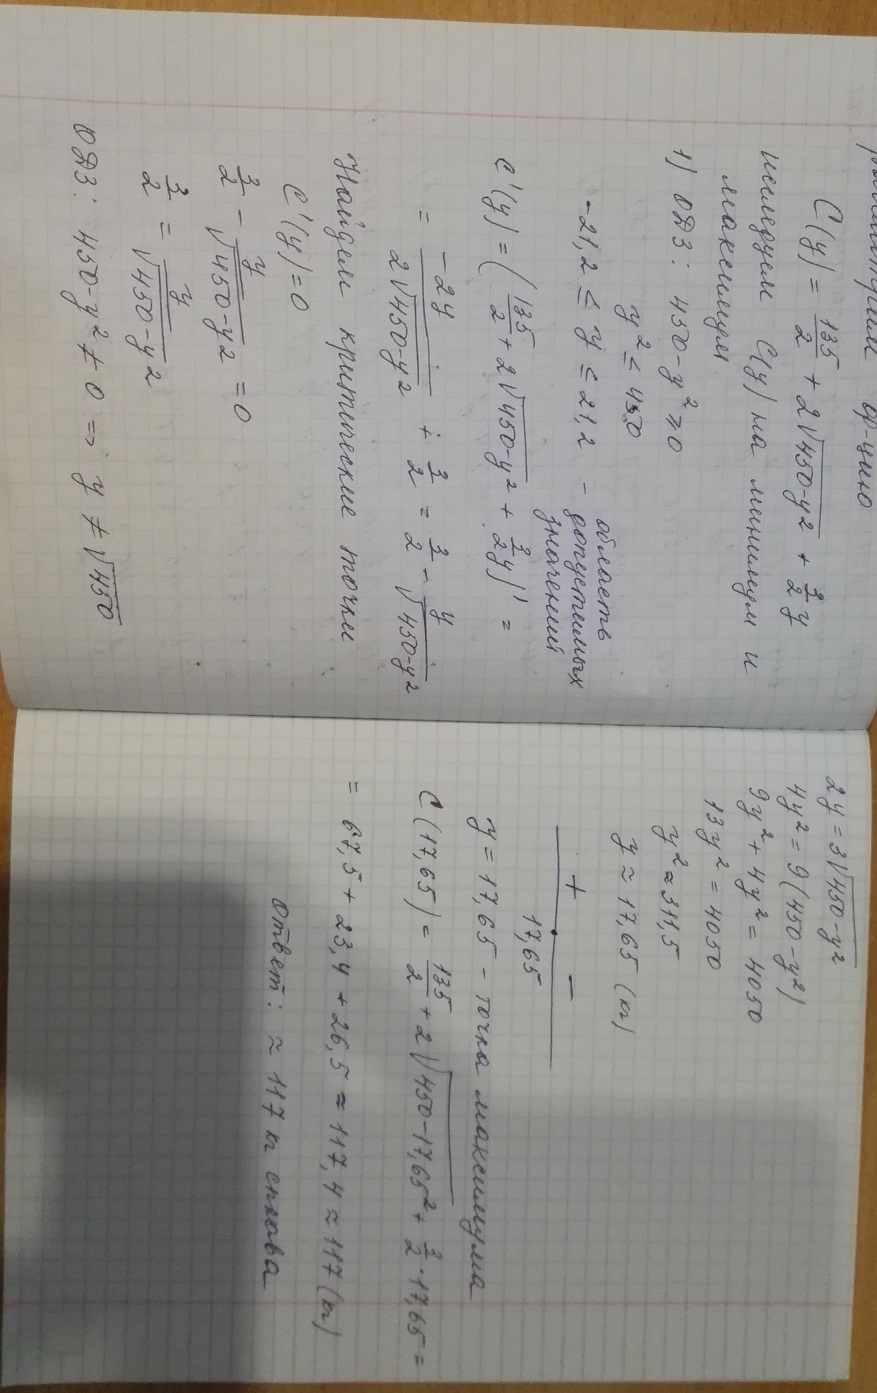 ф-цию
C(y) = 135/2 + 2√(450-y²) + 3/2 y
C(y) на минимум и
максимум.
1) ОДЗ: 450-y² ≥ 0
y² ≤ 450
-21,2 ≤ y ≤ 21,2 - область допустимых значений
C'(y) = (135/2 + 2√(450-y²) + 3/2 y)' =
= -2y/(2√(450-y²)) + 3/2 = 3/2 - y/√(450-y²)
Найдём критические точки
C'(y) = 0
3/2 - y/√(450-y²) = 0
3/2 = y/√(450-y²)
ОДЗ: 450-y² ≠ 0 => y ≠ √450
2y = 3√(450-y²)
4y² = 9(450-y²)
9y² + 4y² = 4050
13y² = 4050
y² ≈ 311,5
y ≈ 17,65 (кг)
+ -
17,65
y = 17,65 - точка максимума
C(17,65) = 135/2 + 2√(450-17,65²) + 3/2 · 17,65 =
= 67,5 + 23,4 + 26,5 = 117,4 ≈ 117 (кг)
Ответ: ≈ 117 кг сплава